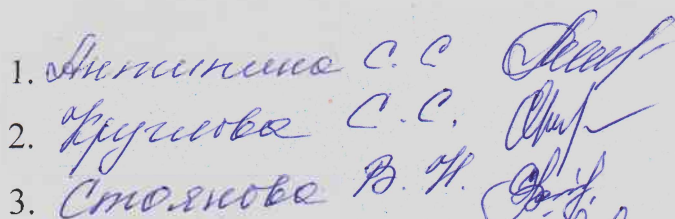 1. Антипина С. С
2. Круглова С. С.
3. Стоянова В. Н.